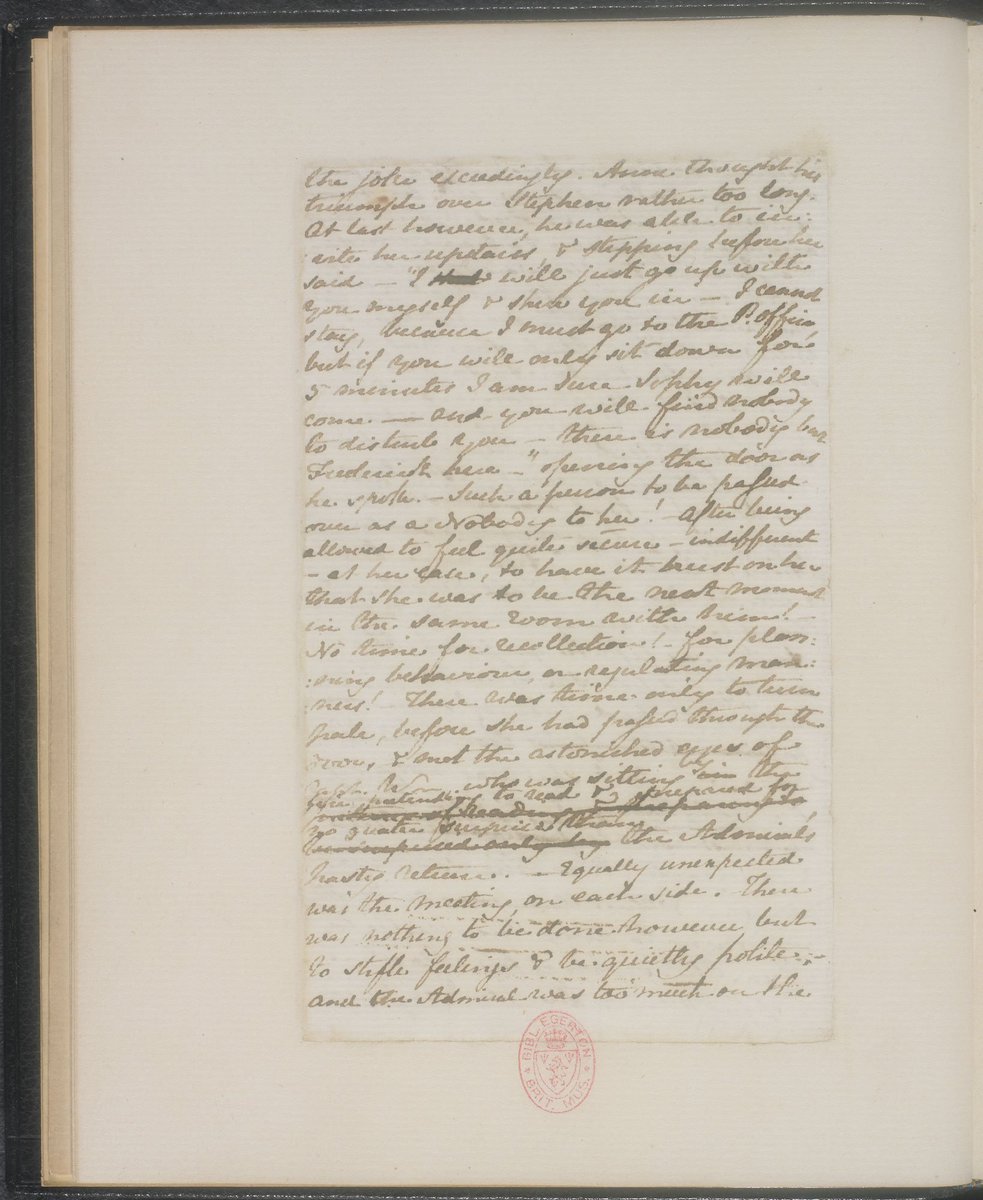 the joke exceedingly. Anne thought his
triumph over Stephen rather too long.
At last however, he was able to in:
:vite her upstairs, & stepping before her
said – "I will just go up with
you myself & shew you in –. I cannot
stay, because I must go to the P. Office,
but if you will only sit down for
5 minutes I am sure Sophy will
come – and you will find nobody
to disturb you – there is nobody but
Frederick here –" opening the door as
he spoke. – Such a person to be passed
over as a Nobody to her! – After being
allowed to feel quite secure – indifferent
– at her ease, to have it burst on her
that she was to be the next moment
in the same room with him! –
No time for recollection! – for plan:
:ning behaviour, or regulating man:
:ners! – There was time only to turn
pale, before she had passed through the
door, & met the astonished eyes of
Capt. W–. who was sitting by the
fire pretending to read & prepared for
no greater surprise than
the Admiral's
hasty return. – Equally unexpected
was the meeting, on each side. There
was nothing to be done however, but
to stifle feelings & be quietly polite; –
and the Admiral was too much on the
BIBL. EGERTON
BRIT. MUS.